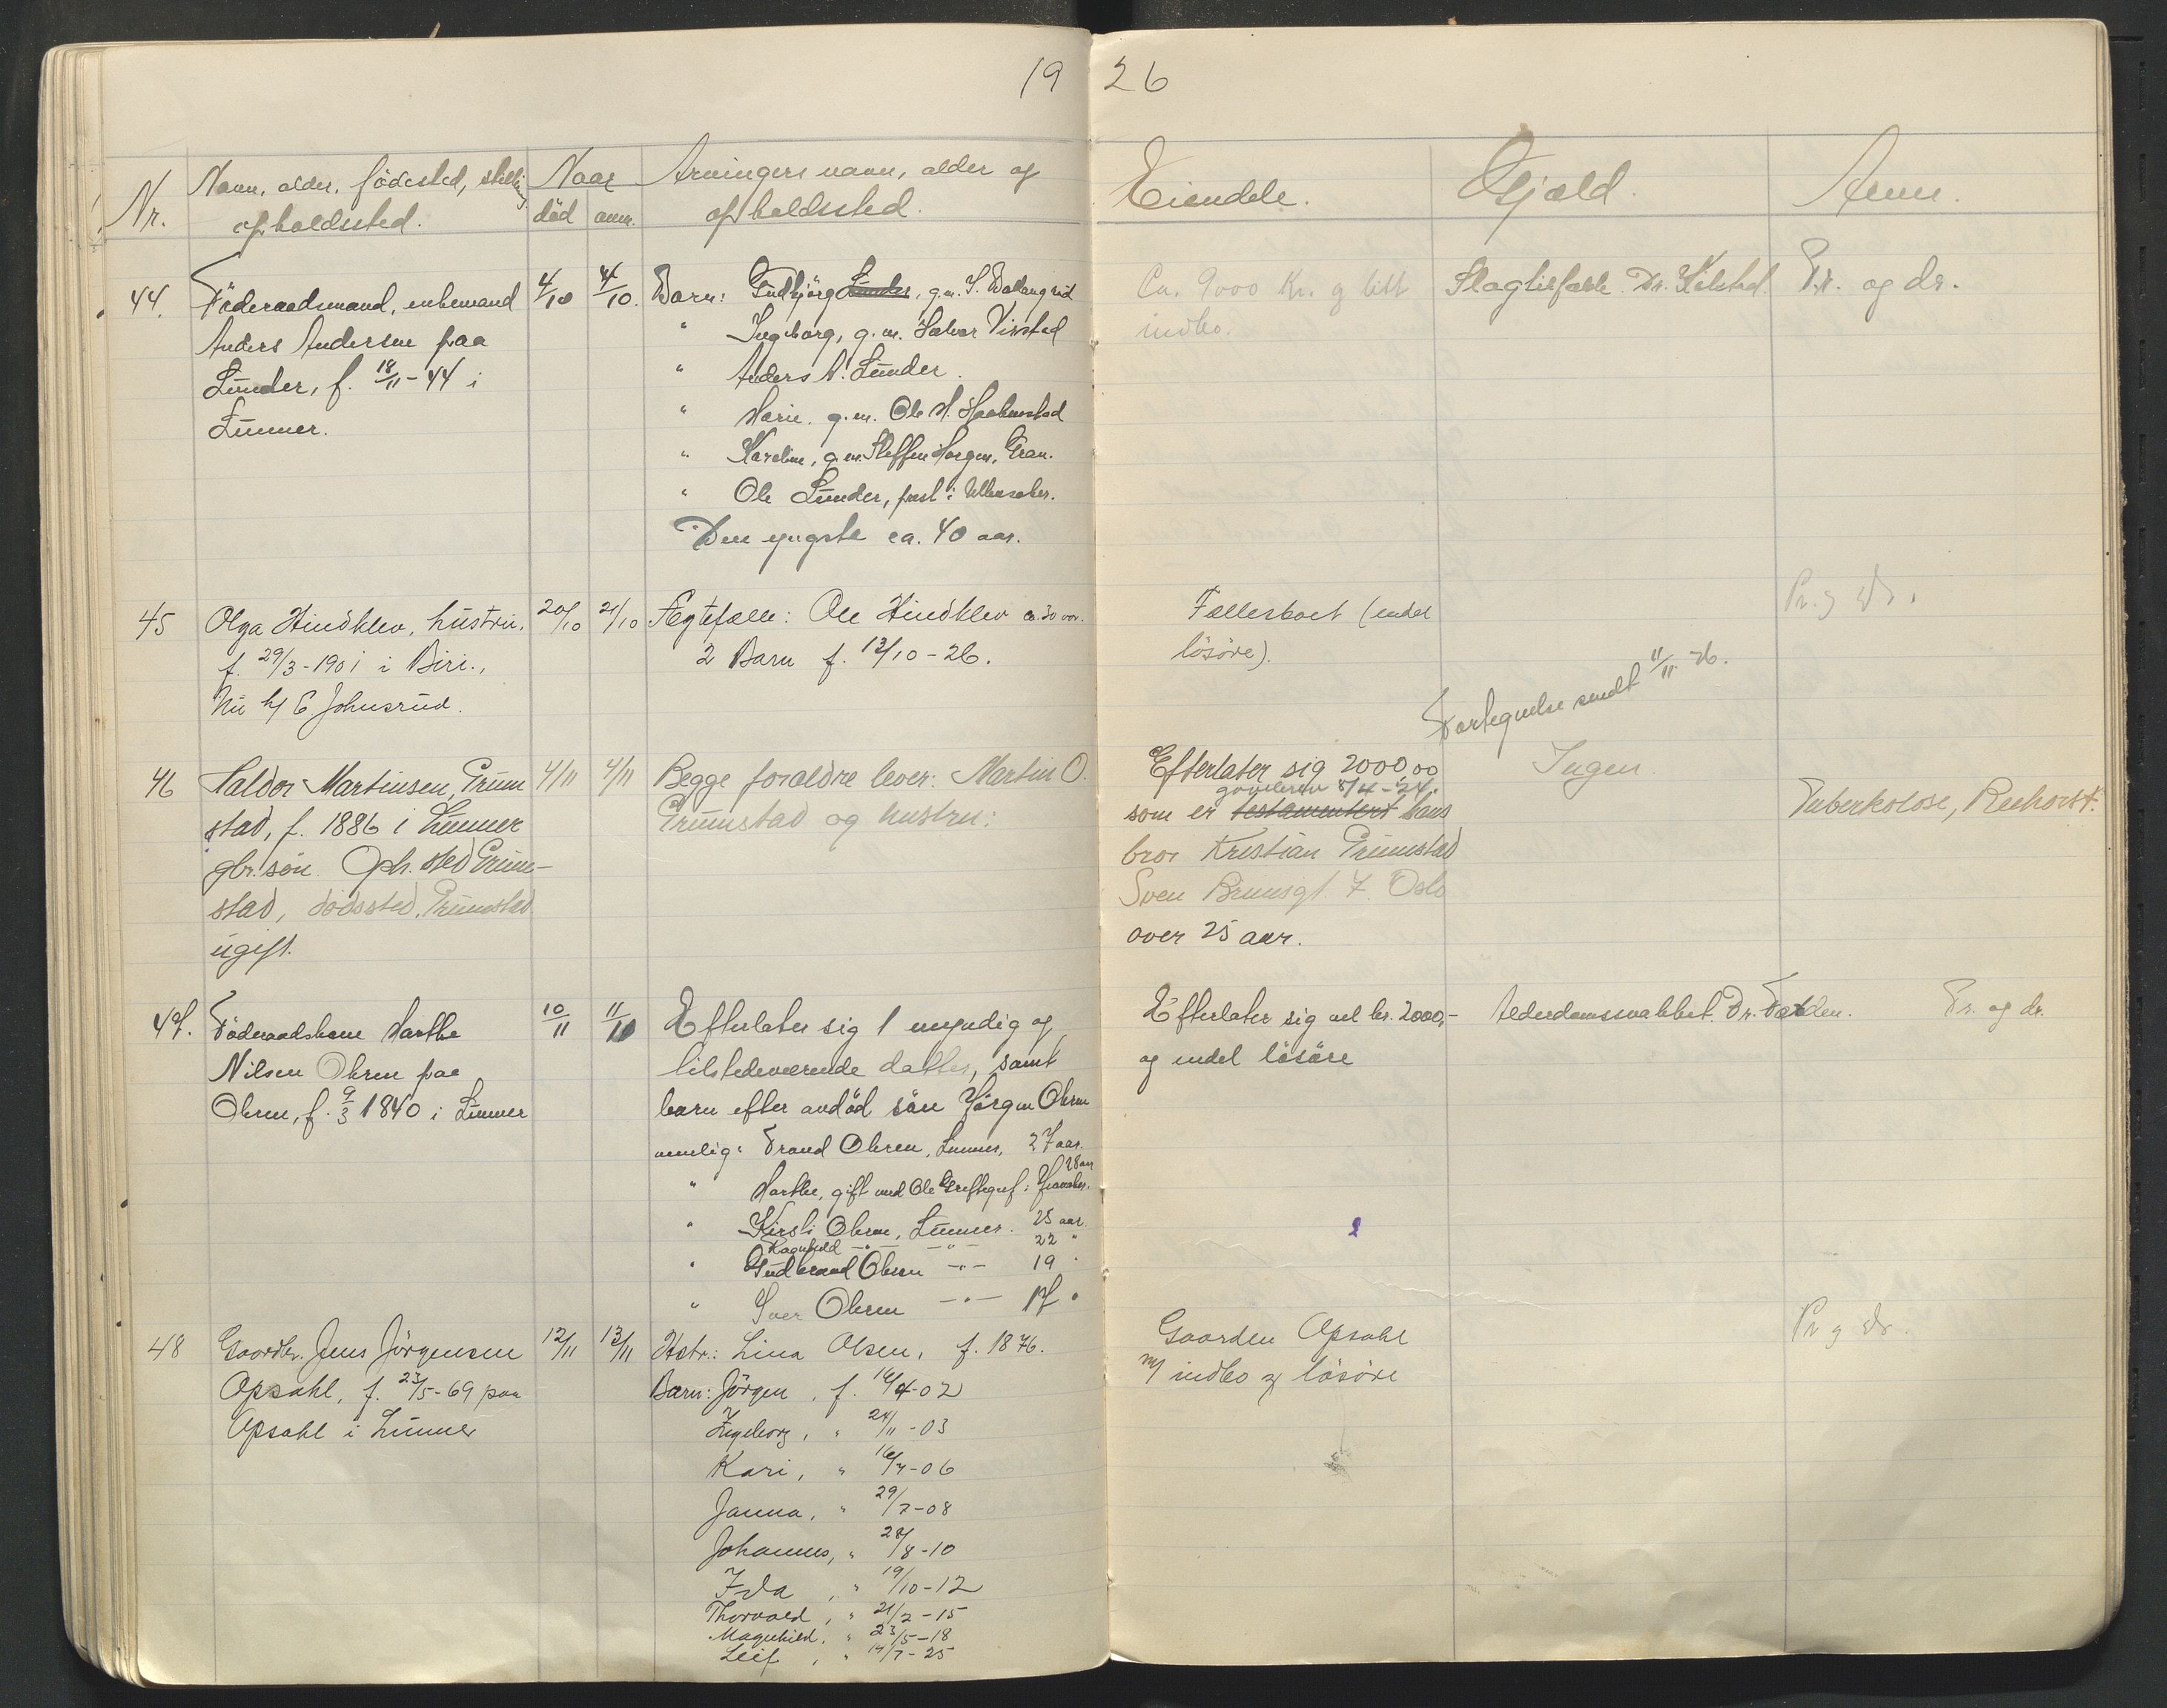 19 26
Nr. Navn, alder, födested, stilling, opholdssted. Naar död anm. Arvingers navn, alder og opholdssted. Eiendele. Gjæld. Anm.
44. Föderaadsmand, enkemand 4/10 4/10. Barn: Gudbjörg Lunder, g.m.
Anders Andersen paa " Ingeborg, g.m. Halvor
Lunder, f. 18/11-44 i " Anders A. Lunder.
Lunner. " Marie, g.m. Ole H.
" Karoline, g.m. Steffen Horgen, Gran.
" Ole Lunder, prest i Ullensaker.
Den yngste ca. 40 aar.
Ca. 9000 Kr. og litt Slagtilfælle Dr. Kolstad. Pr. og dr.
indbo.
45 Olga Hindklev, hustru, 20/10 21/10 Ægtefælle: Ole Hindklev ca. 30 aar.
f. 29/3-1901 i Biri., 2 Barn f. 12/10-26.
Nu h/ E Johnsrud.
Fællesboet (endel Pr. og Dr.
lösöre).
Fortegnelse sendt 11/11 26.
46 Haldor Martinsen Grum 4/11 4/11 Begge foraldre lever: Martin O.
stad, f. 1886 i Lunner Grumstad og hustru:
gbr. sön. Oph. sted Grum-
stad, dödssted Grumstad
ugift.
Efterlater sig 2000,00 Ingen
gaveleven 8/4-24.
som er testamentert hans Tuberkolose,
bror Kristian Grumstad
Sven Brunsgt. 7. Oslo
over 25 aar.
47. Föderaadskone Marthe 10/11 11/10 Efterlater sig 1 myndig og
Nilsen Ohren paa tilstedeværende datter, samt
Ohren, f. 9/3 1840 i Lunner barn efter avdöd sön Jörgen Ohren
nemlig: Trond Ohren, Lunner, 27 aar.
" Marthe, gift med Ole i Jevnaker. 28 aar
" Kirsti Ohren, Lunner. 25 aar
Ragnhild —"— —"— 22 "
" Gudbrand Ohren —"— 19 "
" Iver Ohren —"— 17 "
Efterlater sig vel kr. 2000,- Alderdomssvakhet. Dr. Pr. og dr.
og endel lösöre
48 Gaardbr. Jens Jörgensen 12/11 13/11 Hstr.: Lina Olsen, f. 1876.
Opsahl, f. 23/5-69 paa Barn: Jörgen, f. 14/4-02
Opsahl i Lunner Ingeborg, " 24/11-03
Kari, " 16/4-06
Janna, " 29/7-08
Johannes, " 28/8-10
Ida, " 19/10-12
Thorvald, " 21/2-15
Magnhild, " 23/5-18
Leif, " 14/7-25
Gaarden Opsahl Pr og Dr.
m/ indbo og lösöre